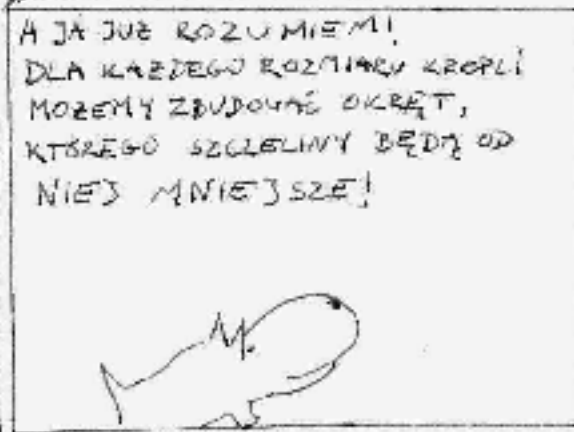 A JA JUŻ ROZUMIEM!
DLA KAŻDEGO ROZMIARU KROPLI
MOŻEMY ZBUDOWAĆ OKRĘT,
KTÓREGO SZCZELINY BĘDĄ OD
NIEJ MNIEJSZE!